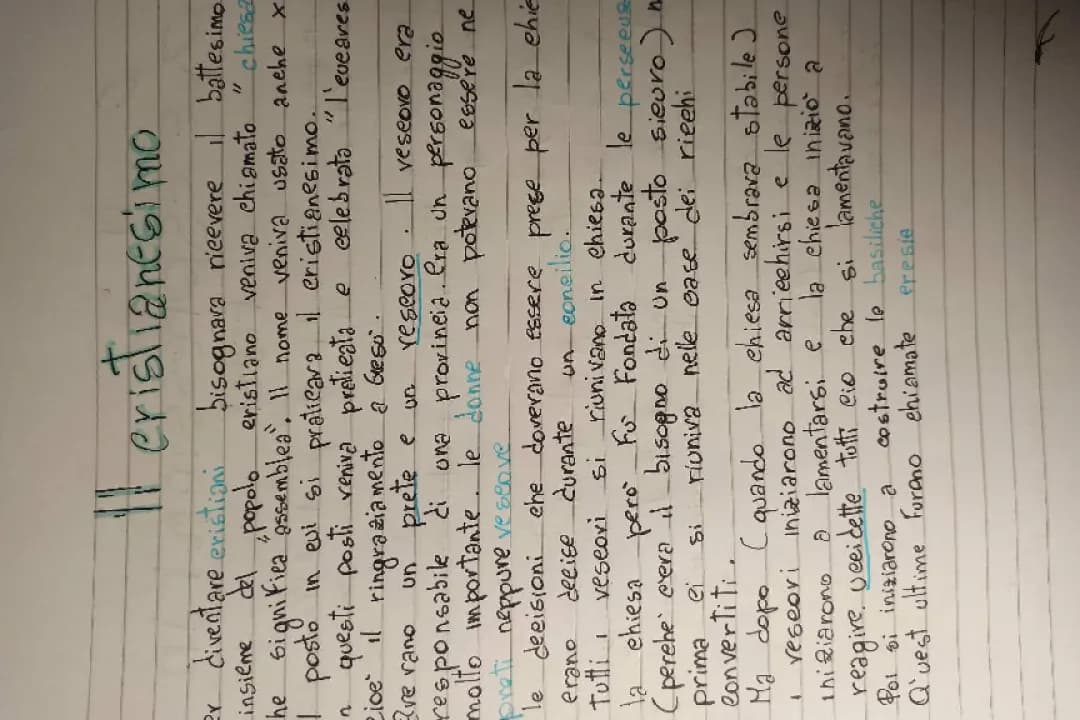 Il cristianesimo
er diventare cristiani bisognava ricevere il battesimo
insieme del "popolo cristiano veniva chiamato "chiesa
he significa "assemblea". Il nome veniva usato anche x
l posto in cui si praticava il cristianesimo.
n questi posti veniva praticata e celebrata "l'eucares
cioè il ringraziamento a Gesù.
avevano un prete e un vescovo. Il vescovo era
responsabile di una provincia. Era un personaggio
molto importante. le donne non potevano essere ne
preti neppure vescove
le decisioni che dovevano essere prese per la chie
erano decise durante un concilio.
Tutti i vescovi si riunivano in chiesa.
la chiesa però fù fondata durante le persecuz
(perchè c'era il bisogno di un posto sicuro) n
prima ci si riuniva nelle case dei ricchi
convertiti.
Ma dopo (quando la chiesa sembrava stabile)
i vescovi iniziarono ad arricchirsi e le persone
iniziarono a lamentarsi e la chiesa iniziò a
reagire. Uccidette tutti cio che si lamentavano.
Poi si iniziarono a costruire le basiliche
Q'uest ultime furono chiamate eresia